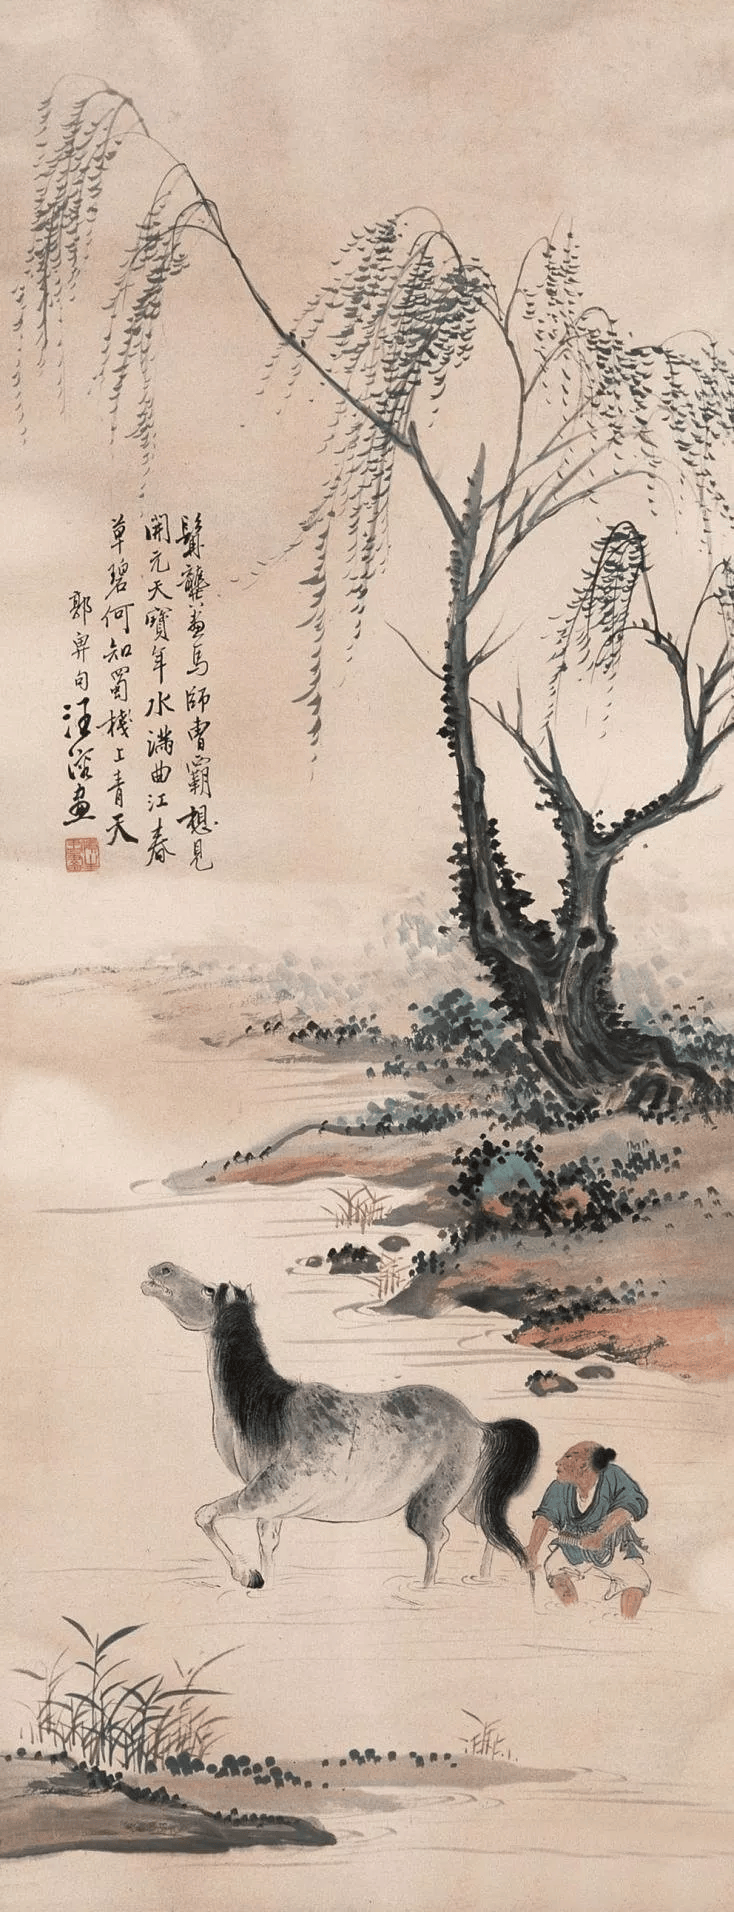 髯龔畫馬師曹霸想見
開元天寶年水滿曲江春
草碧何知蜀棧上青天
郭畀句汪溶畫